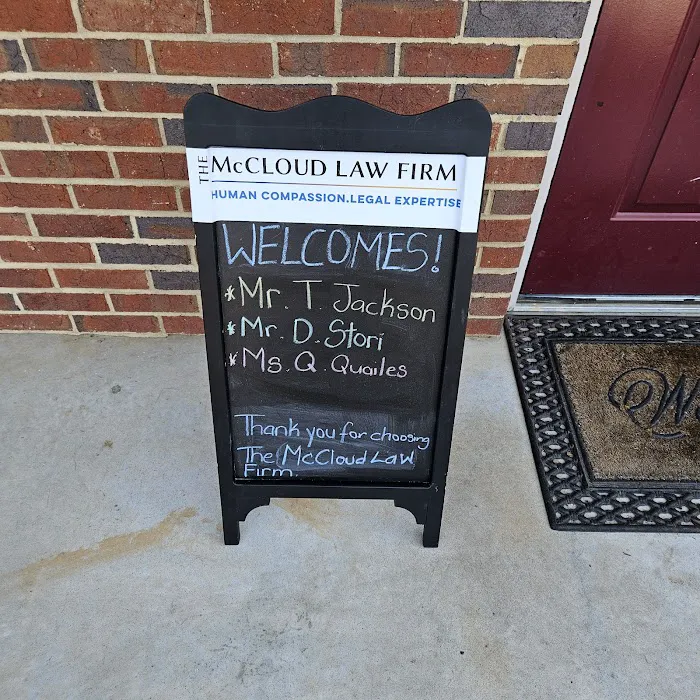 THE McCLOUD LAW FIRM
HUMAN COMPASSION.LEGAL EXPERTISE
WELCOMES!
* Mr. T. Jackson
* Mr. D. Stori
* Ms. Q. Quailes
Thank you for choosing
The McCloud Law
Firm.
W